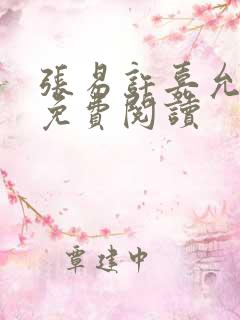 張易許嘉允
免費閱讀
覃建中